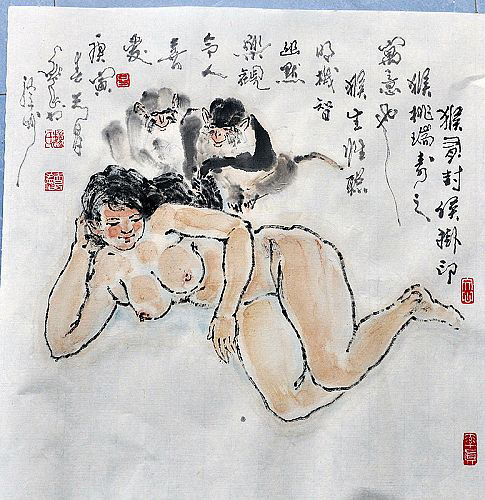 猴有封侯掛印
猴桃瑞壽之
寓意也
猴生性聪
明機智
幽默
樂觀
令人
喜
愛
庚寅